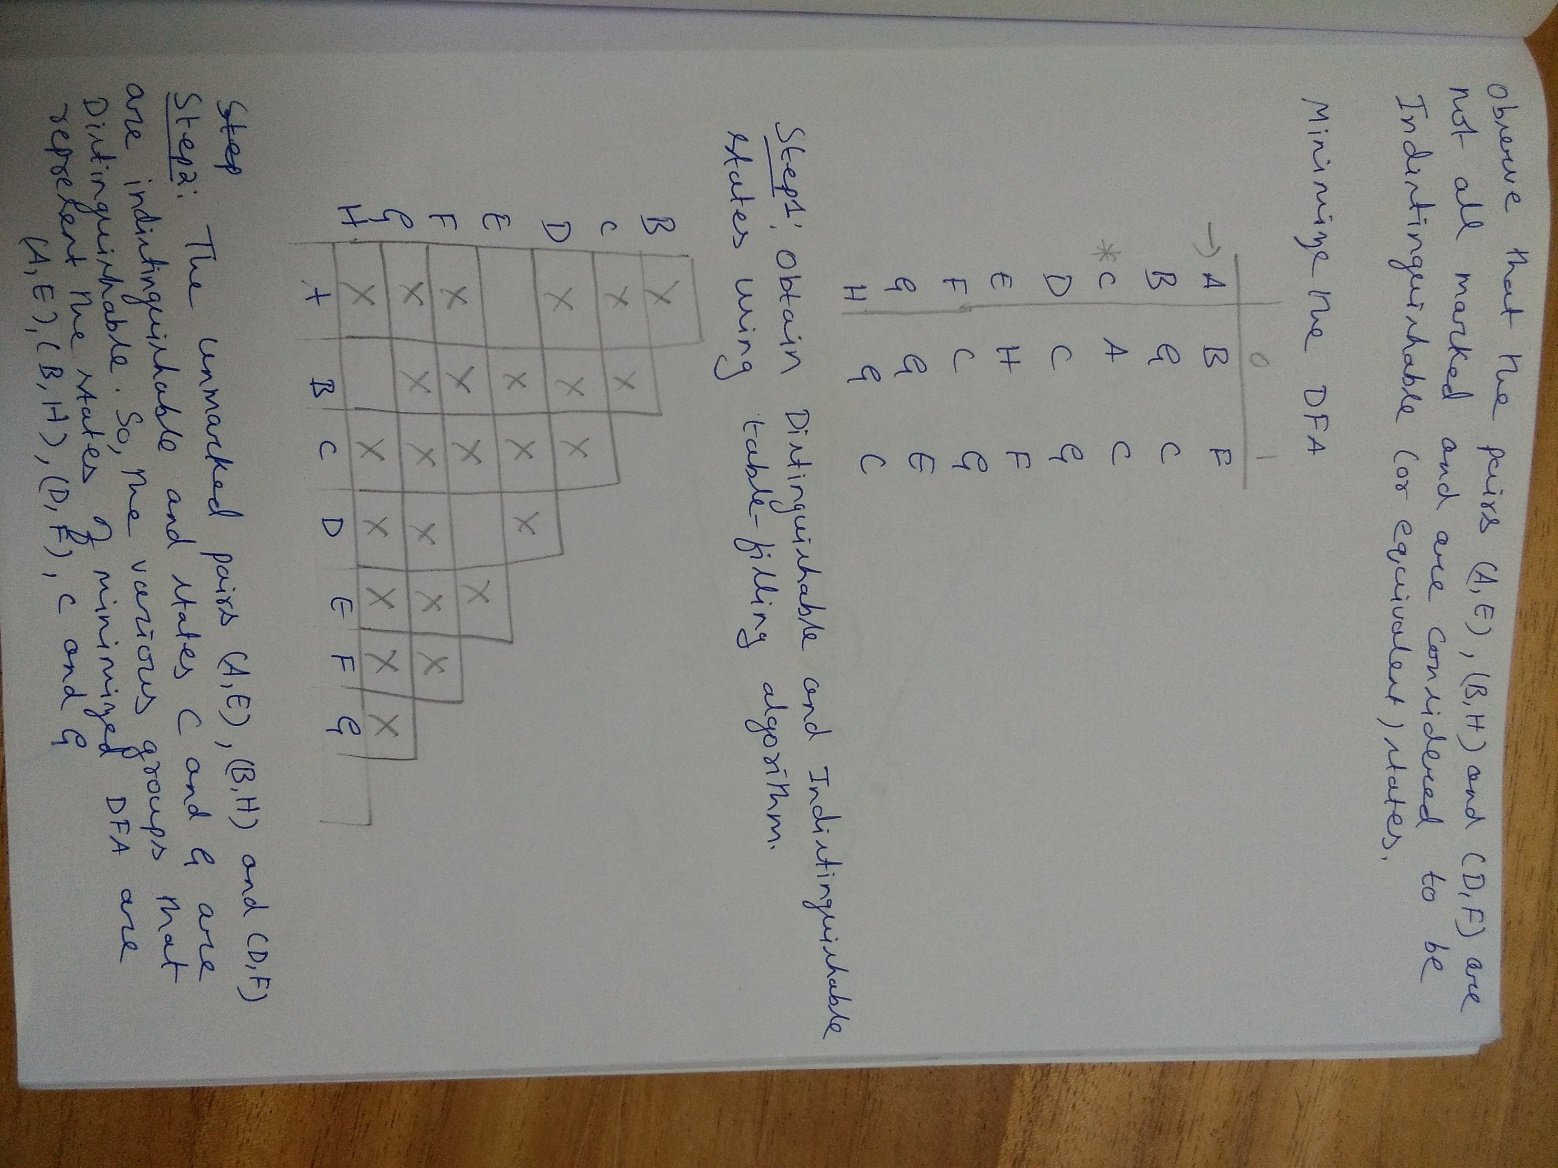 Observe that the pairs (A,E), (B,H) and (D,F) are
not all marked and are considered to be
Indistinguishable (or equivalent) states.
Minimize the DFA
0 1
→ A B F
B G C
* C A C
D C G
E H F
F C G
G G E
H G C
Step1: Obtain Distinguishable and Indistinguishable
states using table-filling algorithm.
B X
C X X
D X X X
E X X X
F X X X X
G X X X X X X
H X X X X X X
A B C D E F G
Step
Step2: The unmarked pairs (A,E), (B,H) and (D,F)
are indistinguishable and states C and G are
Distinguishable. So, the various groups that
represent the states of minimized DFA are
(A,E), (B,H), (D,F), C and G